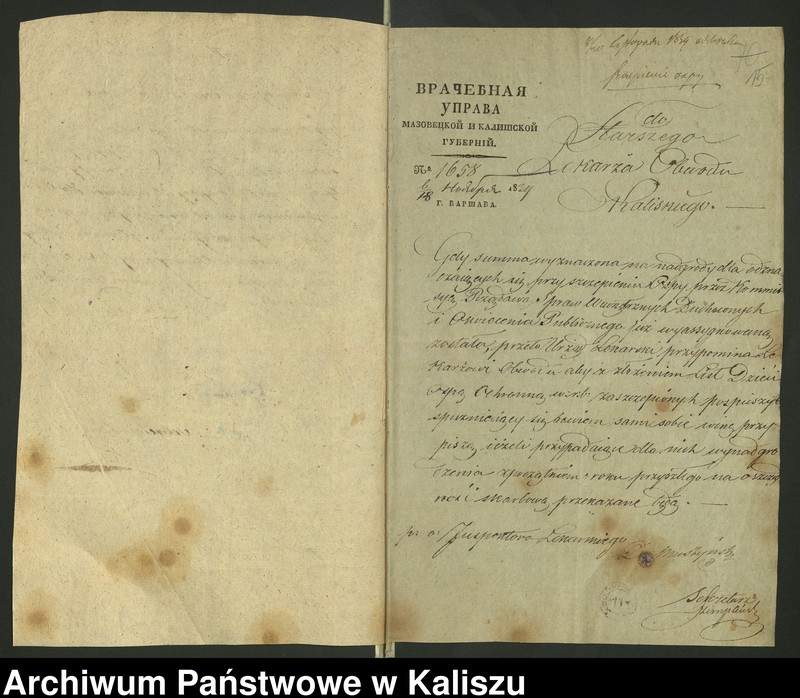 Listopada
ВРАЧЕБНАЯ
УПРАВА
МАЗОВЕЦКОЙ И КАЛИШСКОЙ
ГУБЕРНІЙ.
№ 1658
6/18 Ноября 18
Г. ВАРШАВА.
do
Starszego
Lekarza Obwodu
Kaliskiego. —
Gdy summa wyznaczona na nadgrody dla odzna
czających się przy szczepieniu Ospy przez Kommis
syą Rządową Spraw Wewnętrznych Duchownych
i Oświecenia Publicznego już wyassygnowaną
została, przeto Urząd Lekarski przypomina Le
karzowi Obwodu aby z złożeniem List Dzieci
Ospą Ochronną w r.b. zaszczepionych pospieszył
spóźniający się bowiem sami sobie winę przy
piszą, jeżeli przypadające dla nich wynadgro
dzenia z początkiem roku przyszłego na oszczęd
ność skarbową przekazane będą. —
Inspektora Lekarskiego
Sekretarz
Archiwum Państwowe w Kaliszu